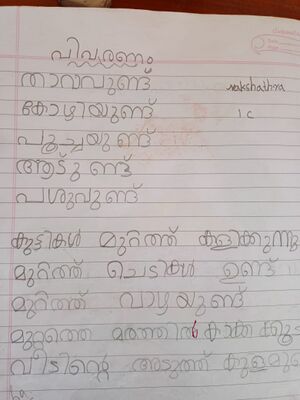 വിവരണം
താറാവുണ്ട് nakshathra
കോഴിയുണ്ട് 1 C
പൂച്ചയുണ്ട്
ആടുണ്ട്
പശുവുണ്ട്
കുട്ടികൾ മുറ്റത്ത് കളിക്കുന്നു
മുറ്റത്ത് ചെടികൾ ഉണ്ട്
മുറ്റത്ത് വാഴയുണ്ട്
മുറ്റത്തെ മരത്തിൽ കാക്ക
വീടിന്റെ അടുത്ത് കുളമു